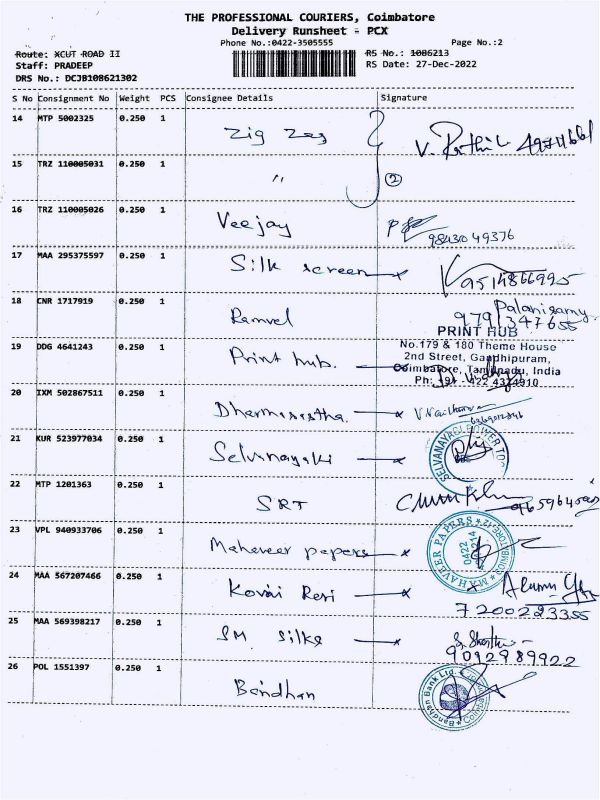 THE PROFESSIONAL COURIERS, Coimbatore
Delivery Runsheet - PCX
Phone No.:0422-3505555 Page No.:2
Route: XCUT ROAD II RS No.: 1086213
Staff: PRADEEP RS Date: 27-Dec-2022
DRS No.: DCJB108621302
S No Consignment No Weight PCS Consignee Details Signature
14 MTP 5002325 0.250 1 Zig Zag
15 TRZ 110005031 0.250 1 〃 2
16 TRZ 110005026 0.250 1 Veejay 9843049376
17 MAA 295375597 0.250 1 Silk screen 9514866995
18 CNR 1717919 0.250 1 Ramvel Palanisamy
9791347655
PRINT HUB
19 DDG 4641243 0.250 1 Print hub. No.179 & 180 Theme House
2nd Street, Gandhipuram,
Coimbatore, Tamilnadu, India
Ph: +91 - 422 4374910
20 IXM 502867511 0.250 1 Dharmasastha.
21 KUR 523977034 0.250 1 Selvinayaki
22 MTP 1201363 0.250 1 SRT
23 VPL 940933706 0.250 1 Mahaveer papers MAHAVEER PAPERS
24 MAA 567207466 0.250 1 Kovai Resi
7200223355
25 MAA 569398217 0.250 1 SM. Silks
9092989922
26 POL 1551397 0.250 1 Bandhan Bandhan Bank Ltd.